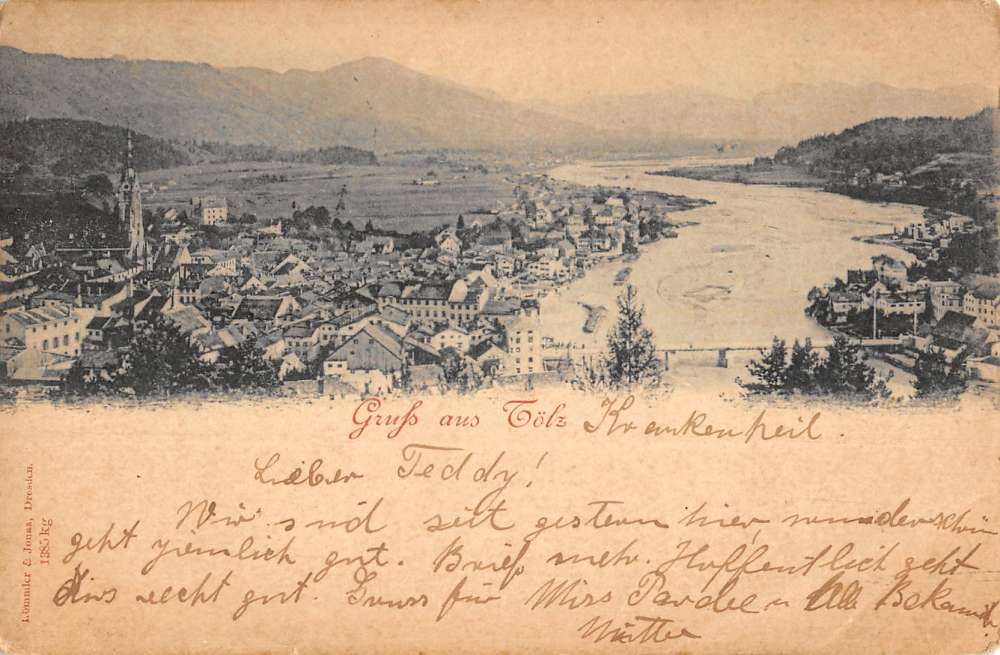 Gruß aus Tölz Krankenheil.
Lieber Teddy!
Wir sind seit gestern hier, wunderschön
geht ziemlich gut. Brief mehr. Hoffentlich geht
dirs recht gut. Gruss für Miss Pardee u Alle Bekannte
Mutter
Römmler & Jonas, Dresden.
1285 kg